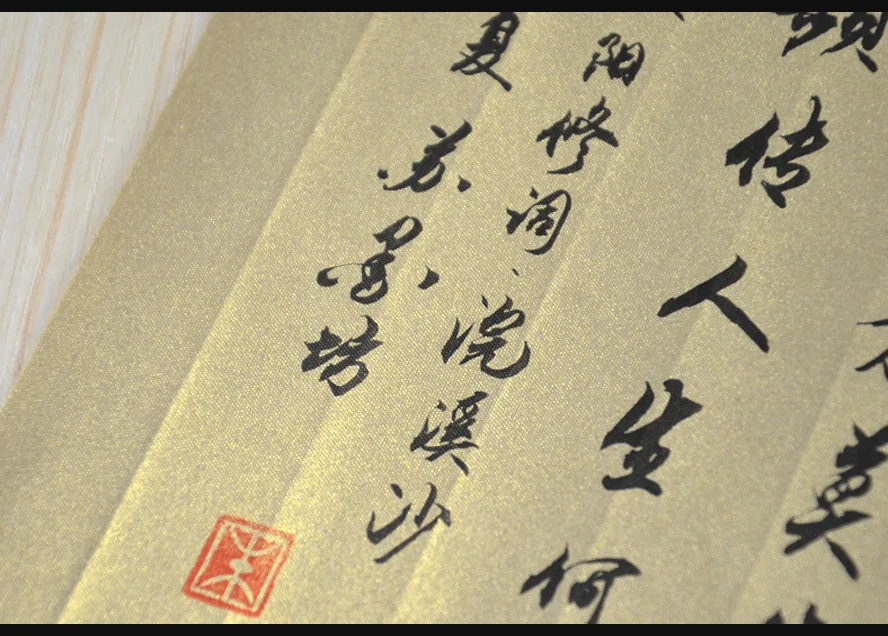 莫
频传人生何
阳修词浣溪沙
夏苏墨坊